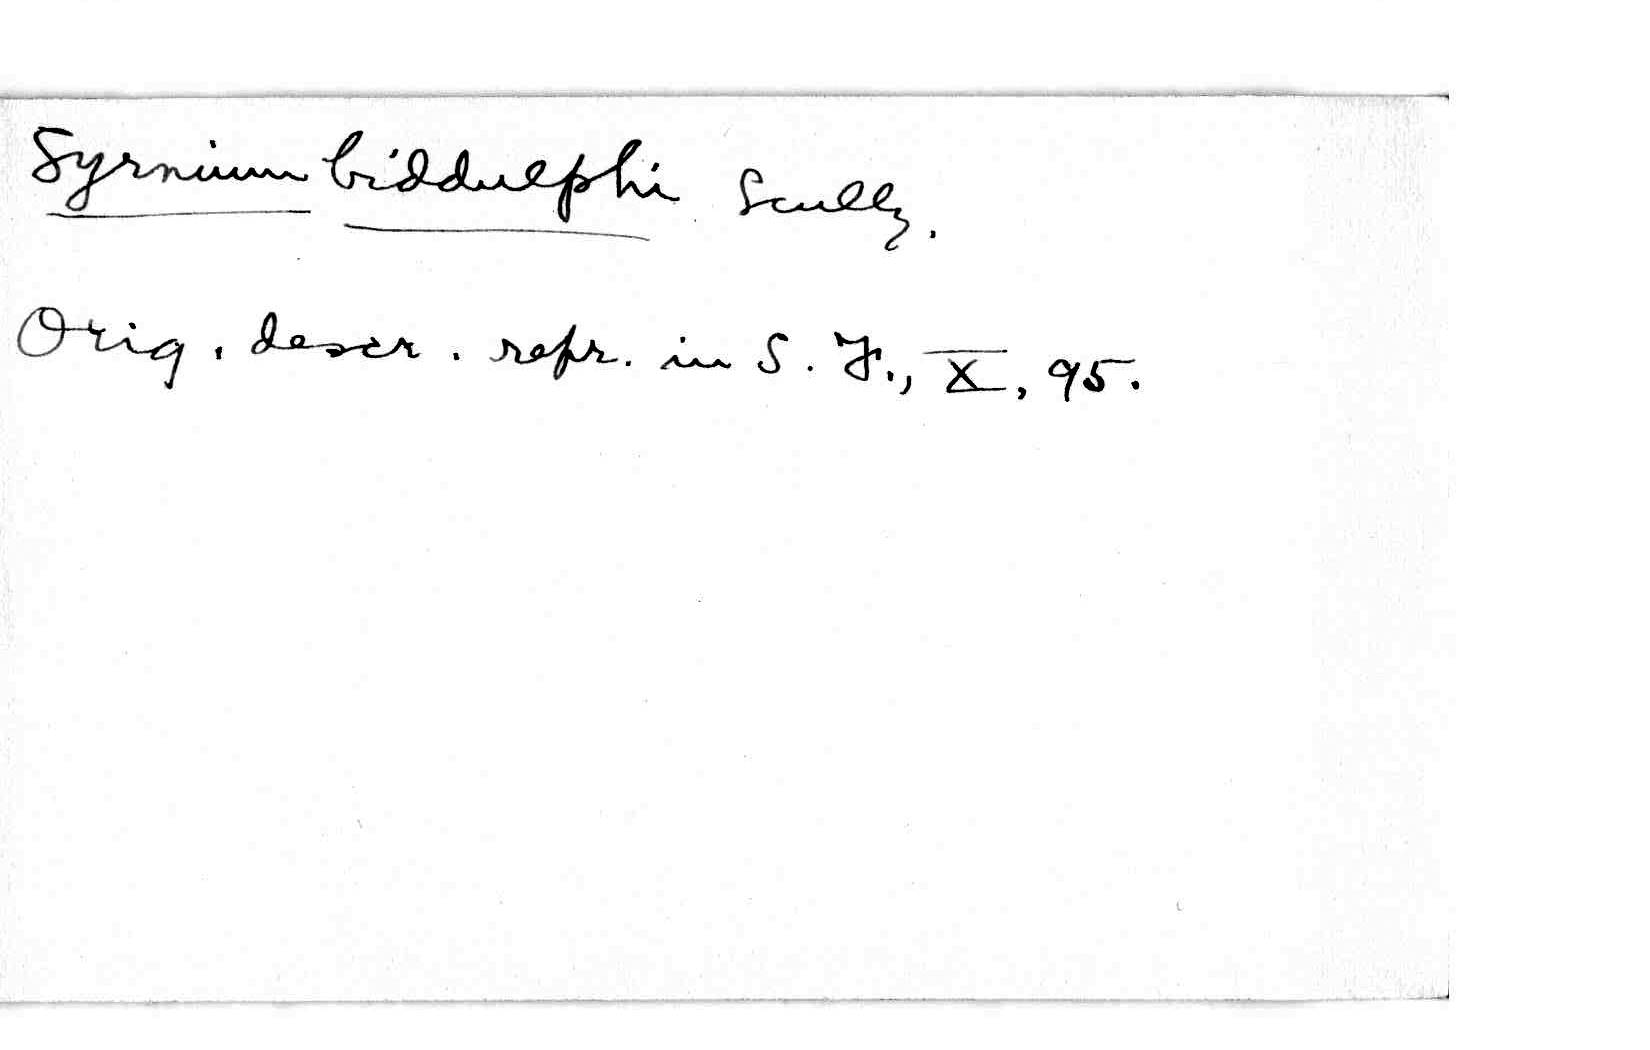 Syrnium biddulphi Scully.
Orig. descr. repr. in S. F., X, 95.